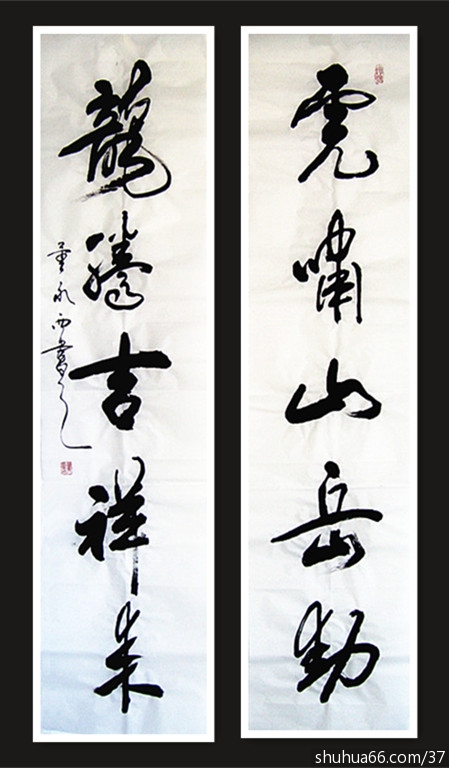 虎嘯山岳動
龍騰吉祥来
董永西書
shuhua66.com/37